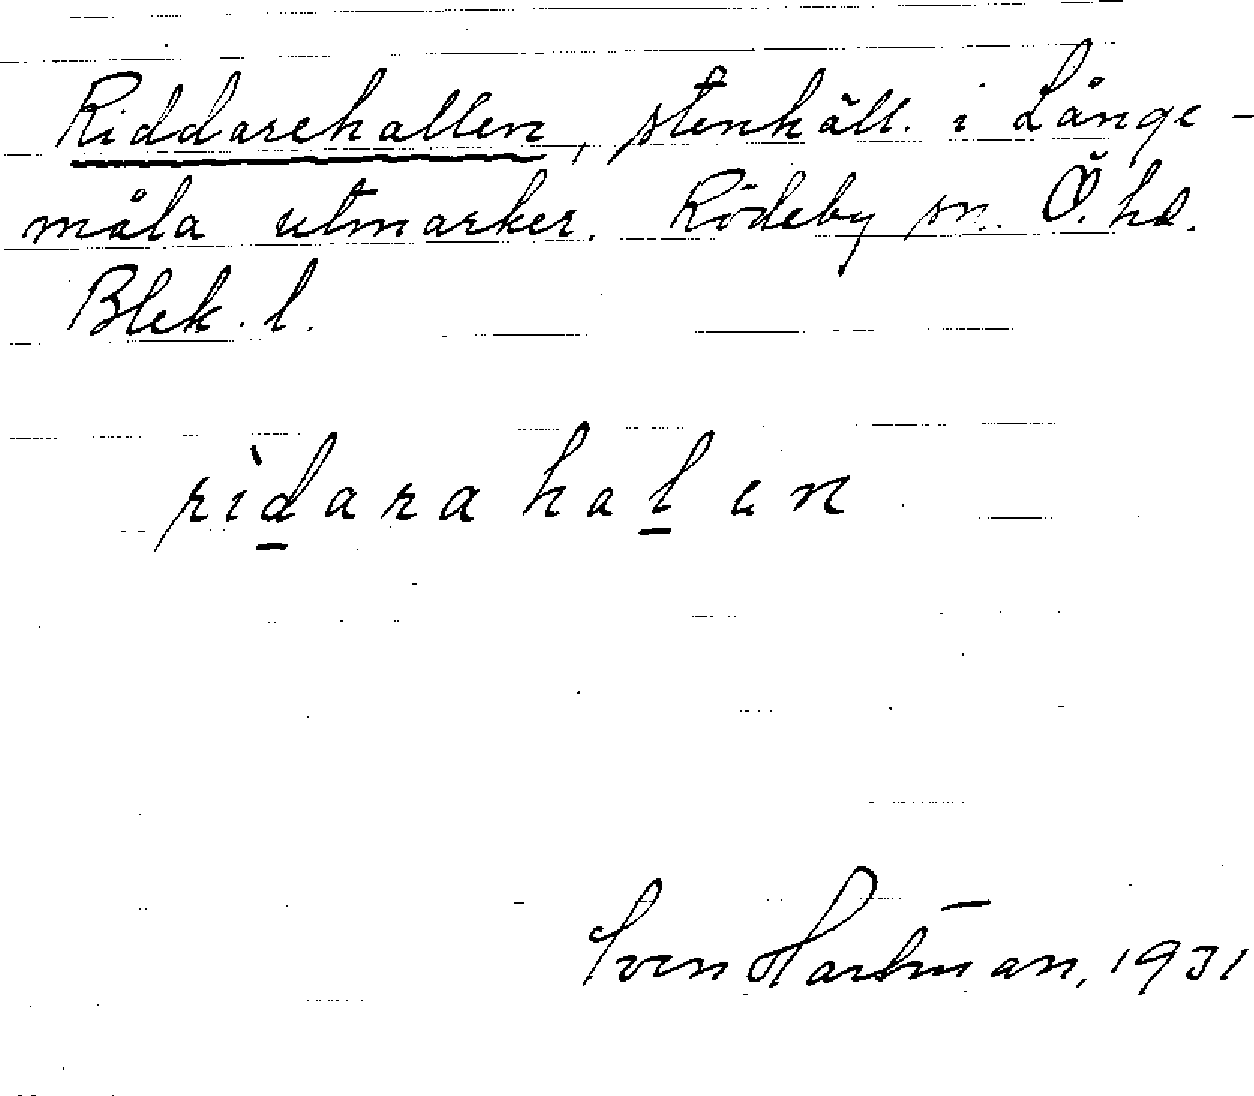 Riddarehallen, stenhäll. i Långe-
måla utmarker. Rödeby sn. Ö. hd.
Blek. l.
rìdarahalen
Sven Hartman, 1931